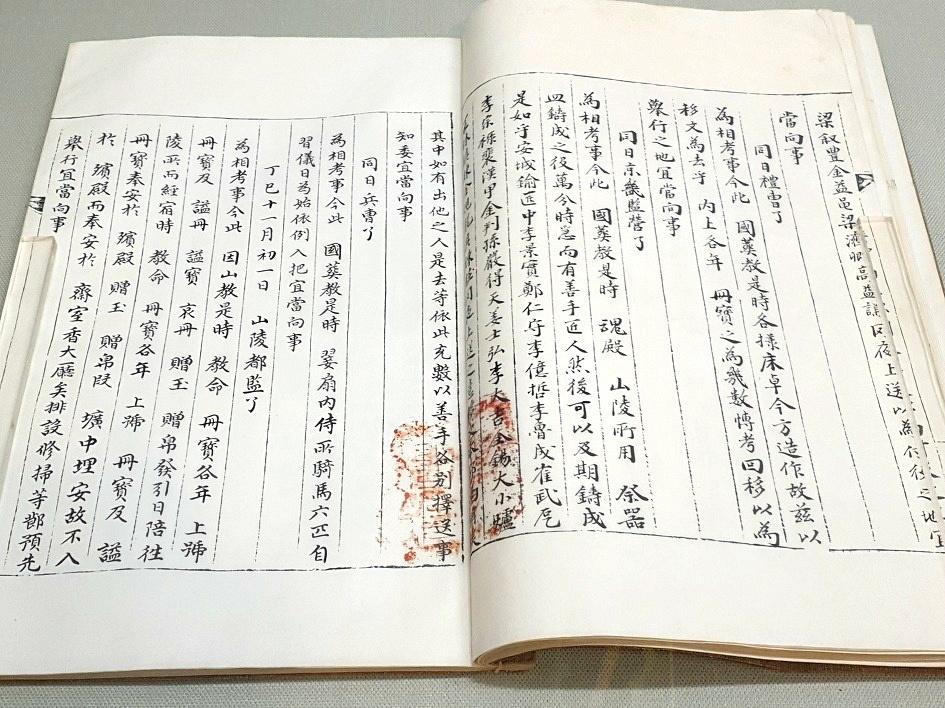 梁叙豊金益
當向事
同日禮曹了
為相考事今此 國葬敎是時各樣床卓今方造作故玆以
移文為去乎 內上各年 冊寶之為幾數傳考回移以為
擧行之地宜當向事
同日京畿監營了
為相考事今此 國葬敎是時 魂殿 山陵所用 祭器
皿鑄成之役萬分時急而有善手匠人然後可以及期鑄成
是如乎安城鍮匠申李景實鄭仁守李億哲李魯成崔武尼
李宗祿裴漢甲金判孫嚴得天姜士弘李大吉金錫大小爐
其中如有出他之人是去等依此充數以善手各別擇送事
知委宜當向事
同日兵曹了
為相考事今此 國葬敎是時 翣扇內侍所騎馬六匹自
習儀日為始依例入把宜當向事
丁巳十一月初一日 山陵都監了
為相考事今此 因山敎是時 敎命 冊寶各年 上號
冊寶及 謚冊 謚寶 哀冊 贈玉 贈帛發引日陪往
陵所而經宿時 敎命 冊寶各年 上號 冊寶及 謚
冊寶奉安於 殯殿 贈玉 贈帛段 壙中埋安故不入
於 殯殿而奉安於 齋室香大廳矣排設修掃等節預先
擧行宜當向事